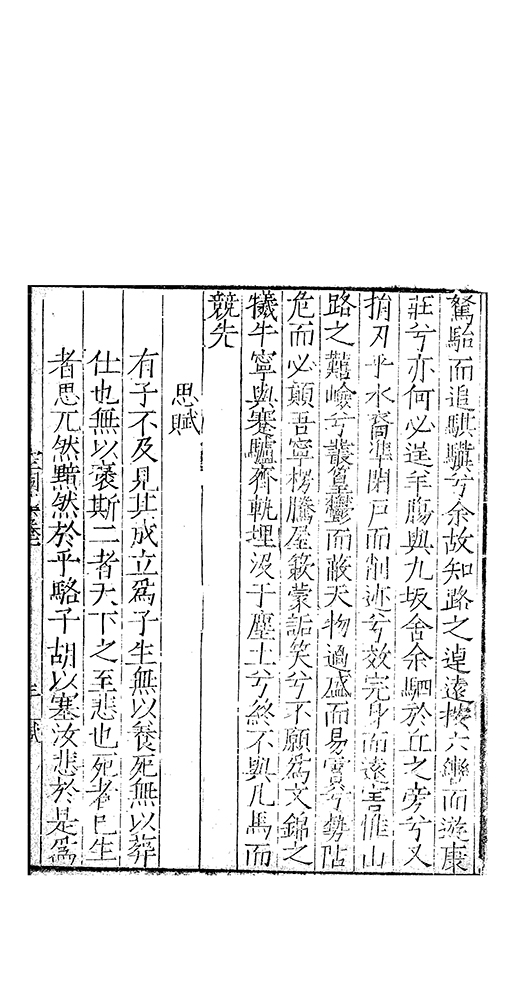 駑駘而追騏驥兮余故知路之逴遠攬六轡而遊康
莊兮亦何必逞羊膓與九坂舍余駟於丘之旁兮又
捐刃乎水裔準閉戸而削迹兮效完身而遠害惟山
路之難嶮兮叢篁鬱而蔽天物過盛而易實兮勢阽
危而必顛吾寧楞騰屋簌蒙詬笑兮不願爲文錦之
犧牛寧與蹇驢齊軌埋没于塵土兮終不與凡馬而
競先
思賦
有子不及見其成立爲子生無以養死無以葬
仕也無以褒斯二者天下之至悲也死者已生
者思兀然黯然於乎駱子胡以塞汝悲於是爲